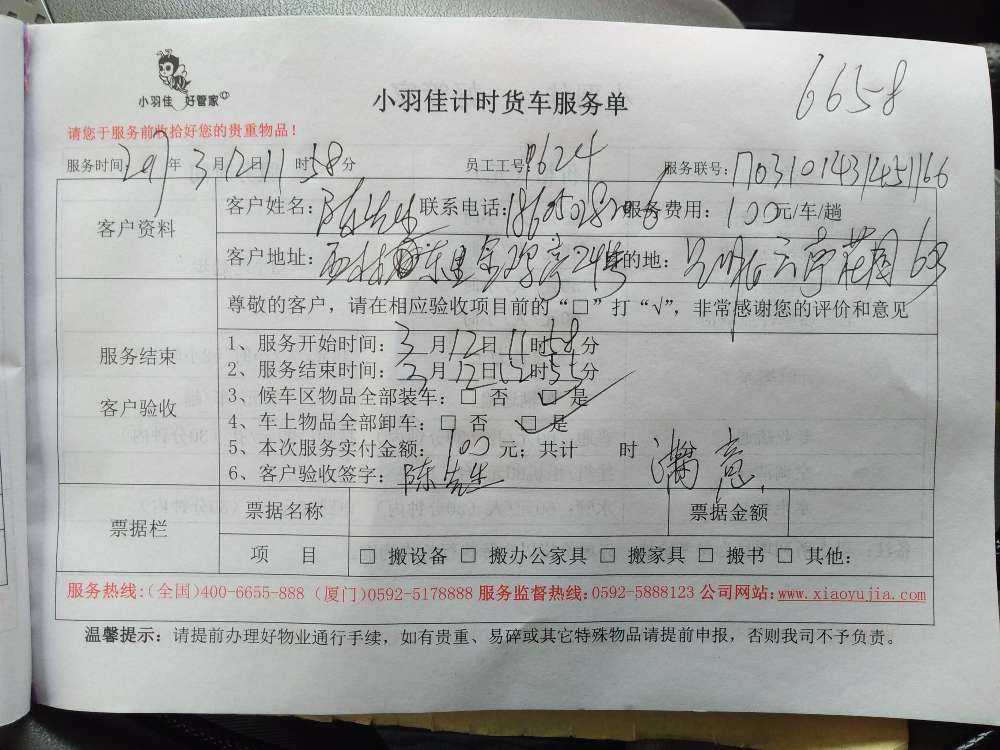 6658
小羽佳 好管家
小羽佳计时货车服务单
请您于服务前收拾好您的贵重物品！
服务时间: 年 3月12日11时58分 员工工号: 8624 服务联号:
客户资料
客户姓名: 陈先生 联系电话: 服务费用: 100元/车/趟
客户地址: 目的地:
尊敬的客户，请在相应验收项目前的“□”打“√”，非常感谢您的评价和意见
服务结束
客户验收
1、服务开始时间: 3月12日11时58分
2、服务结束时间: 3月12日12时55分
3、候车区物品全部装车: □ 否 ☑ 是
4、车上物品全部卸车: □ 否 ☑ 是
5、本次服务实付金额: 100 元; 共计 时
6、客户验收签字: 陈先生 满意
票据栏
票据名称 票据金额
项 目 □ 搬设备 □ 搬办公家具 □ 搬家具 □ 搬书 □ 其他:
服务热线:(全国)400-6655-888 (厦门)0592-5178888 服务监督热线:0592-5888123 公司网站:www.xiaoyujia.com
温馨提示: 请提前办理好物业通行手续，如有贵重、易碎或其它特殊物品请提前申报，否则我司不予负责。